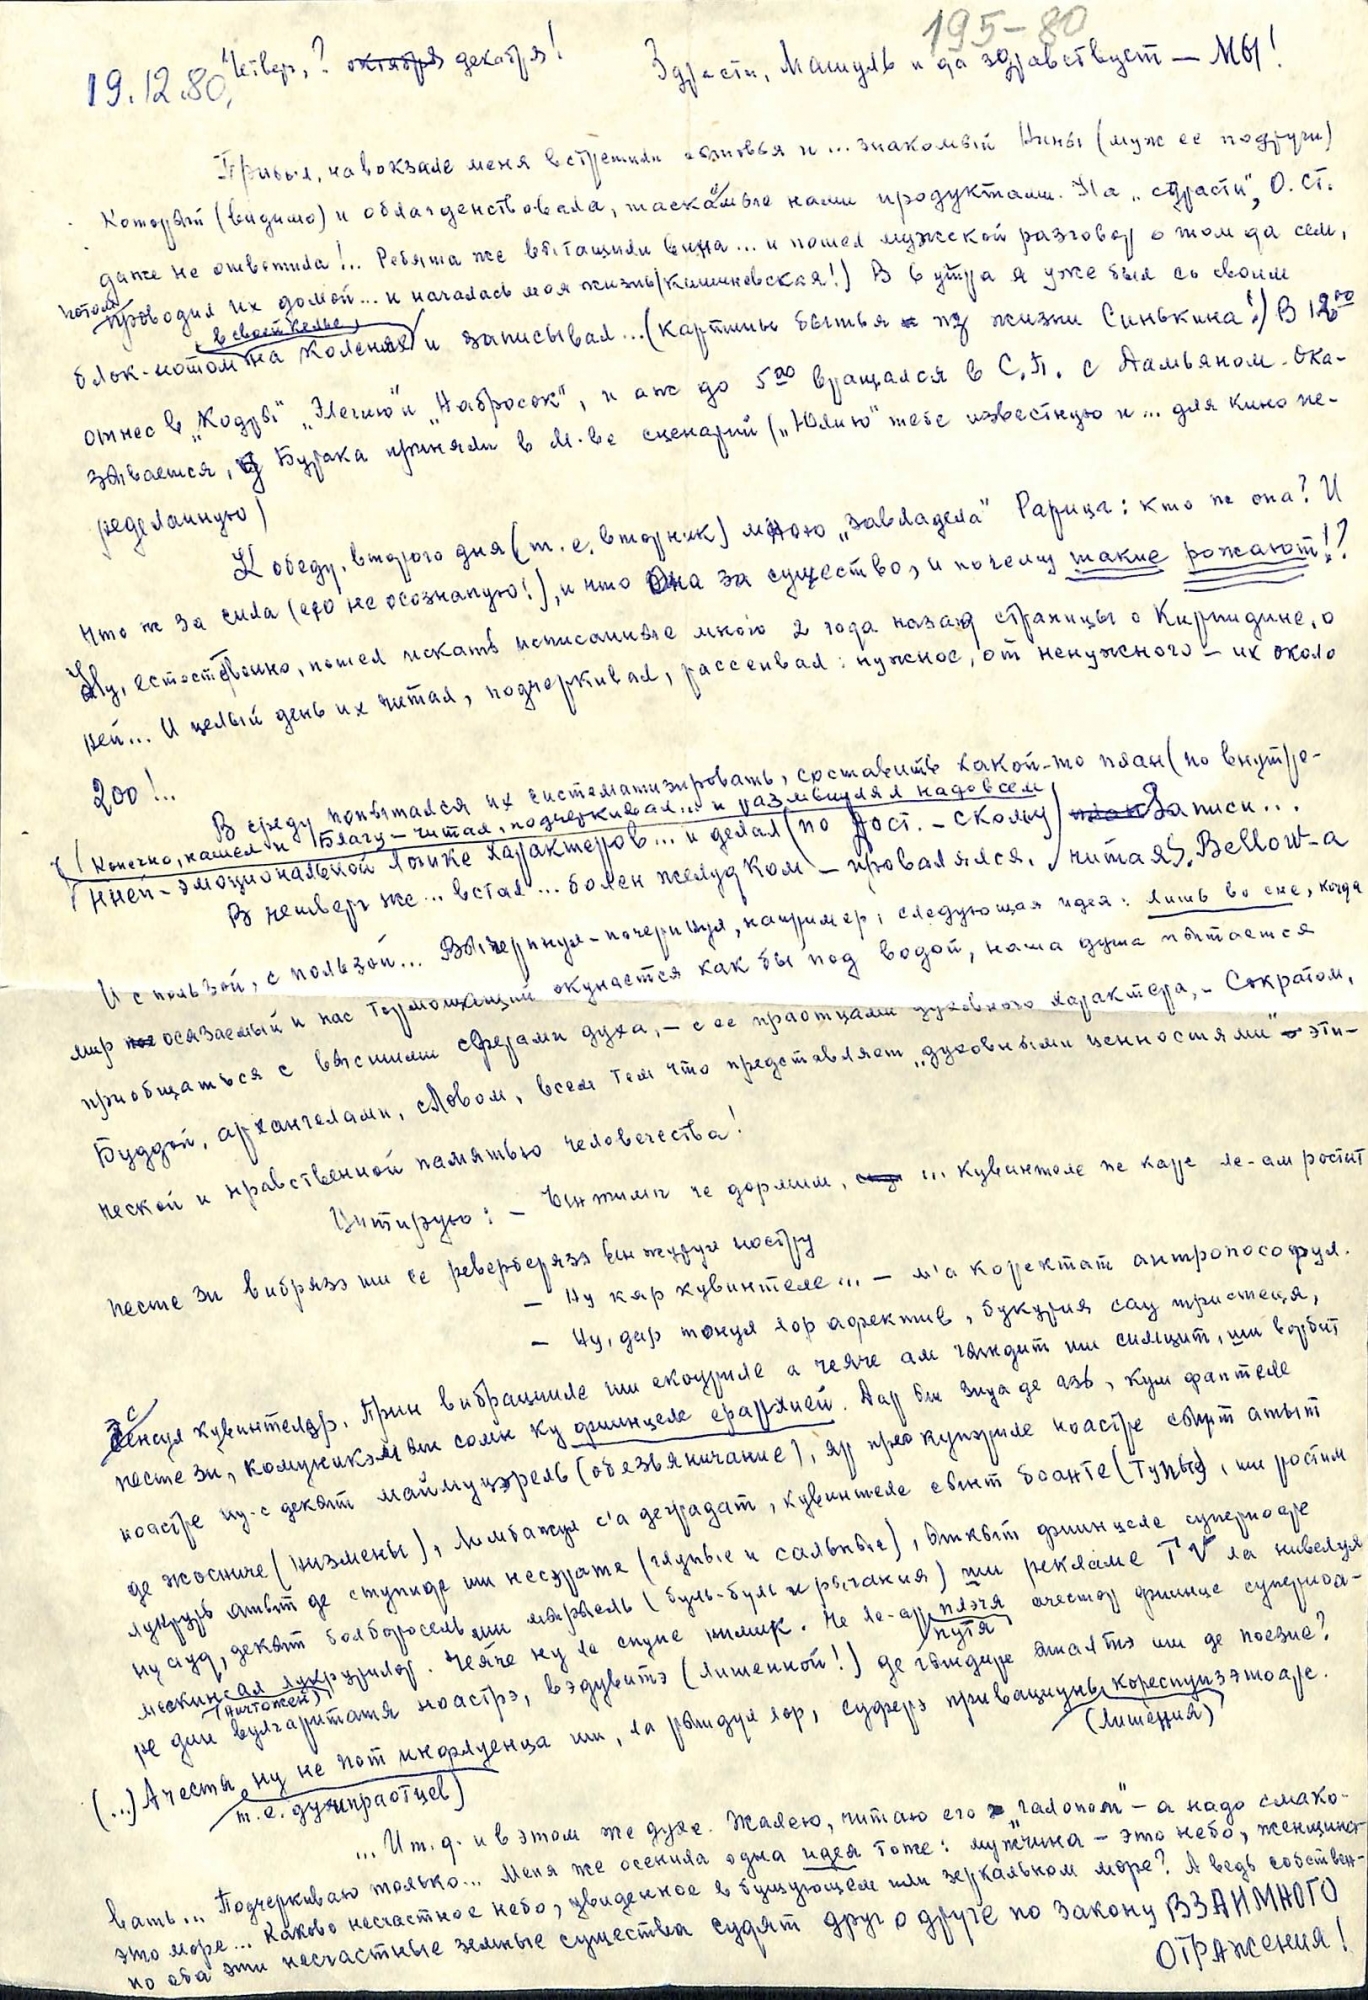 195-80
19.12.80, Четвер,? октября декабря!
Здрасти, Машуль и да здравствует — МЫ!
Прибыл, на вокзале меня встретили сыновья и ... знакомый Нины (муж ее подруги)
Который (видимо) и облагоденствовала, таскаемые нами продуктами. На „страсти", О. Ст.
даже не ответила!.. Ребята же вытащили вина ... и пошел мужской разговор о том да сем,
потом проводил их домой ... и началась моя жизнь (кишиневская!) В 6 утра я уже был со своим
в своей келье,
блок-нотом на коленях и записывал ... (картины бытья из жизни Синькина!) В 12⁰⁰
отнес в „Кодры" „Элегию" и „Набросок", и аж до 5⁰⁰ вращался в С.П. с Дамьяном. Ока-
зывается, у Бурака приняли в М-ве сценарий („Юлию" тебе известную и ... для кино пе-
ределанную)
К обеду второго дня (т.е. вторник) мною „завладела" Рарица: кто же она? И
что ж за сила (ею не осознаную!), и что она за существо, и почему такие рожают!?
Ну, естественно, пошел искать исписанные мною 2 года назад страницы о Кирпидине, о
ней ... И целый день их читал, подчеркивал, рассеивал: нужное, от ненужного — их около
200!..
В среду попытался их систематизировать, составить какой-то план (по внутре-
(Конечно, нашел и Благу — читал, подчеркивал ... и размышлял надо всем
нней-эмоциональной логике характеров ... и делал (по Дост.-скому) план Записи ...
В четверг же ... встал ... болен желудком — провалялся, читая S. Bellow-а
И с пользой, с пользой ... Вычерпнул-почерпнул, например, следующая идея: лишь во сне, когда
мир осязаемый и нас тормошащий окунается как бы под водой, наша душа пытается
приобщаться с высшими сферами духа, — с ее праотцами духовного характера, — Сократом,
Буддой, архангелами, словом, всем тем что представляет „духовными ценностями" эти-
ческой и нравственной памятью человечества!
Цитирую: — Ынтимп че дормим, ... кувинтеле пе каре ле-ам ростит
песте зи вибрязэ ши се реверберязэ ын журул ностру
— Ну кяр кувинтеле ... — м'а коректат антропософул.
— Ну, дар тонул лор афектив, букурия сау тристеця,
сенсул кувинтелор. Прин вибрацииле ши екоуриле а чеяче ам гындит ши симцит, ши ворбит
песте зи, комуникэм ын сомн ку фиинцеле ерархией. Дар ын зиуа де азь, кум фаптеле
ноастре ну-с декыт маймуцэрель (обезьяничание), яр преокупэриле ноастре сынт атыт
де жосниче (низмены), лимбажул с'а деградат, кувинтеле сынт боанте (тупые), ши ростим
лукрурь атыт де ступиде ши несэрате (глупые и сальные), ынкыт фиинцеле супериоаре
ну ауд, декыт болборосель ши мырыель (буль-буль и рычания) ши рекламе TV ла нивелул
мескин ал лукрурилор. Чеяче ну ле спуне нимик. Че ле-ар плэчя ачестор фиинце супериоа-
(ничтожен) путя
ре дин вулгаритатя ноастрэ, вэдувитэ (лишенной!) де гындире ыналтэ ши де поезие?
(...) Ачестя ну не пот инфлуенца ши, ла рындул лор, суферэ привациунь кореспунзэтоаре.
т.е. духи праотцев) (лишения)
... И т.д. и в этом же духе. Жалею, читаю его „галопом" — а надо смако-
вать ... Подчеркиваю только ... Меня же осенила одна идея тоже: мужчина — это небо, женщина —
это море ... Каково несчастное небо, увиденное в бушующем или зеркальном море? А ведь собствен-
но оба эти несчастные земные существа судят друг о друге по закону ВЗАИМНОГО
ОТРАЖЕНИЯ!